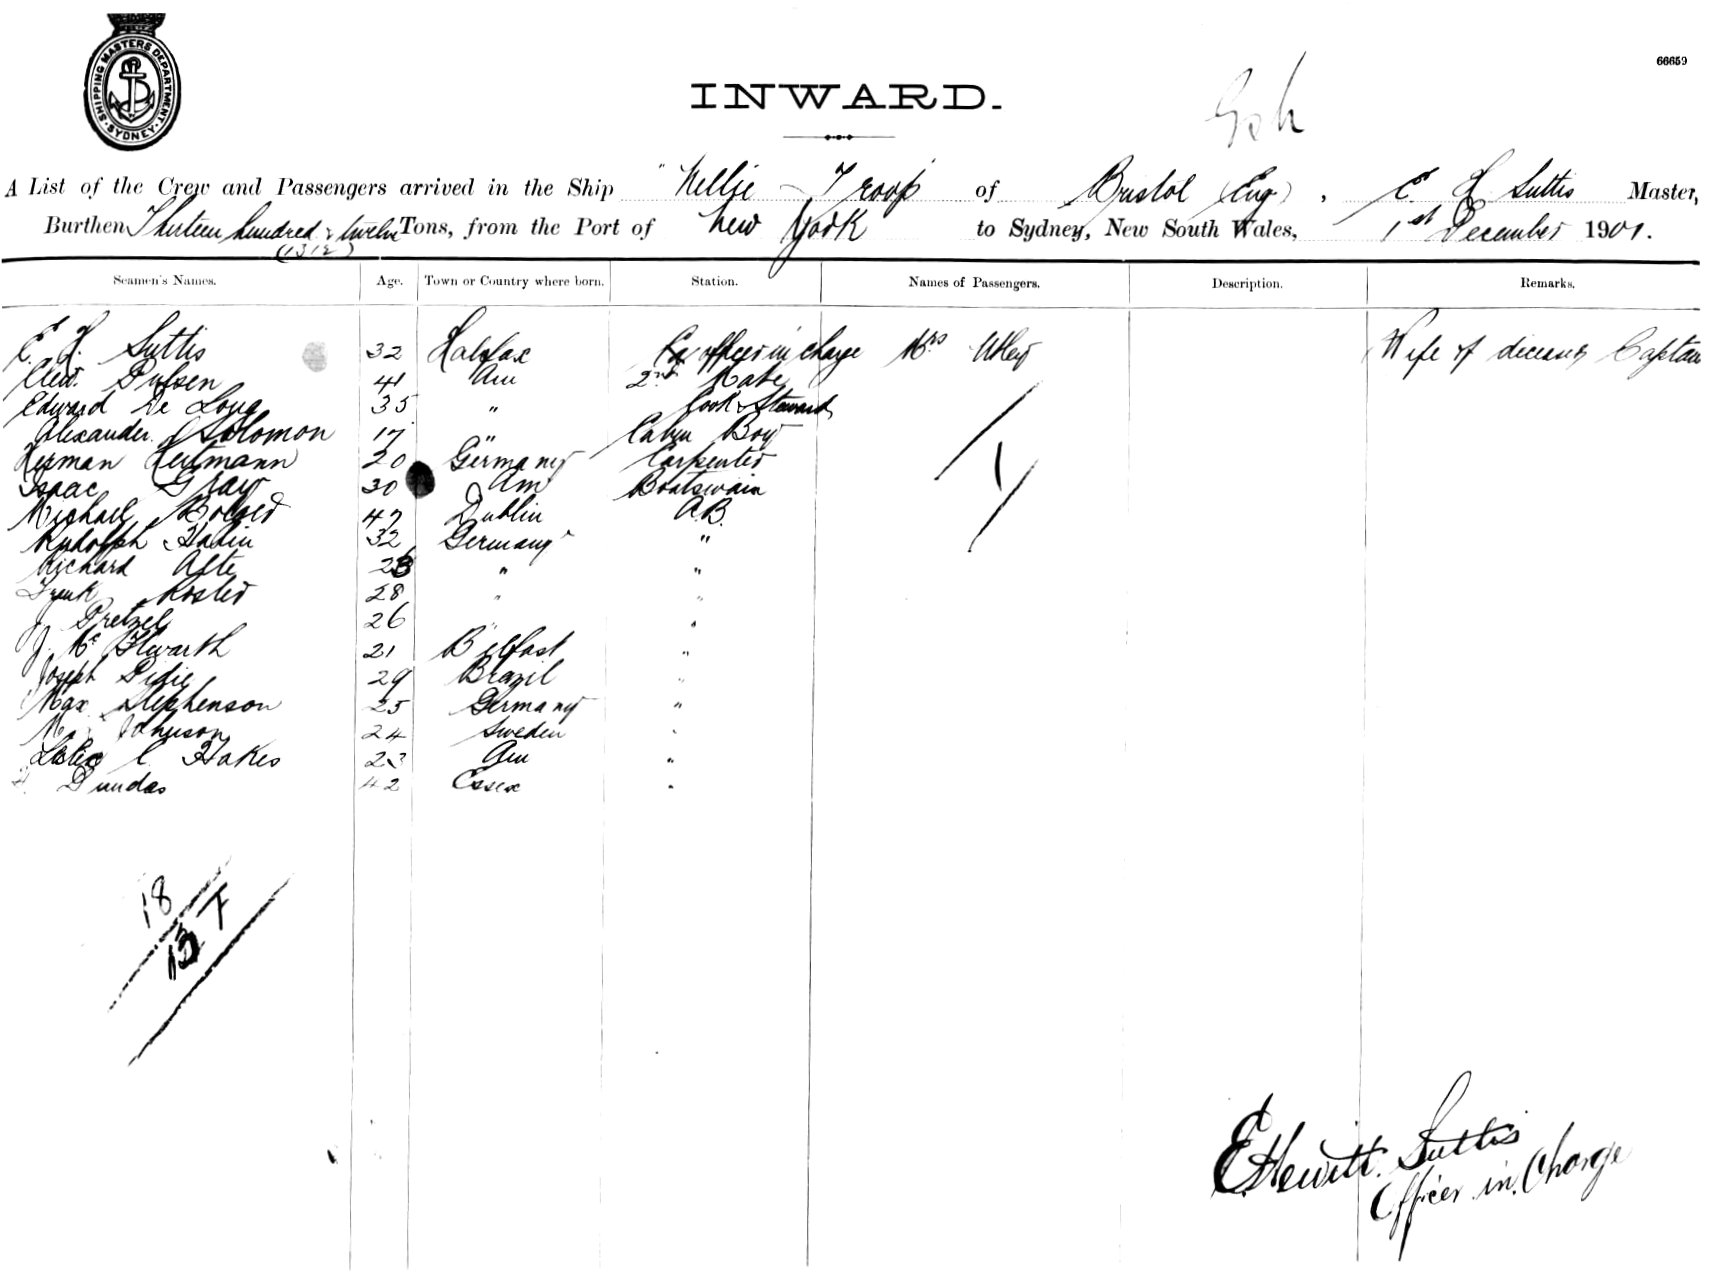 SHIPPING MASTERS DEPARTMENT. SYDNEY.
66659
INWARD.
A List of the Crew and Passengers arrived in the Ship "Nellie Troop" of Bristol (Eng), E H Suttis Master,
Burthen Thirteen hundred & twelve Tons, from the Port of New York to Sydney, New South Wales, 1st December 1901.
(1312)
Seamen's Names. Age. Town or Country where born. Station. Names of Passengers. Description. Remarks.
E. H. Suttis 32 Halifax officer in charge Mrs Utley Wife of deceased Captain
41 Am 2nd Mate
Edward De Long 35 " Cook & Steward
Alexander Solomon 17 " Cabin Boy
Herman 20 Germany Carpenter
Isaac Gray 30 Am Boatswain
Michael 47 Dublin A.B.
Rudolph 32 Germany "
Richard Alte " "
Frank Koster 28 " "
J. Pretzel 26 " "
J. Mc 21 Belfast "
Joseph 29 Brazil "
Max Stephenson 25 Germany "
M. Johnson 24 Sweden "
C. Hakes 23 Am "
Dundas 42 Essex "
1
18
13 F
E Hewitt Suttis
Officer in Charge